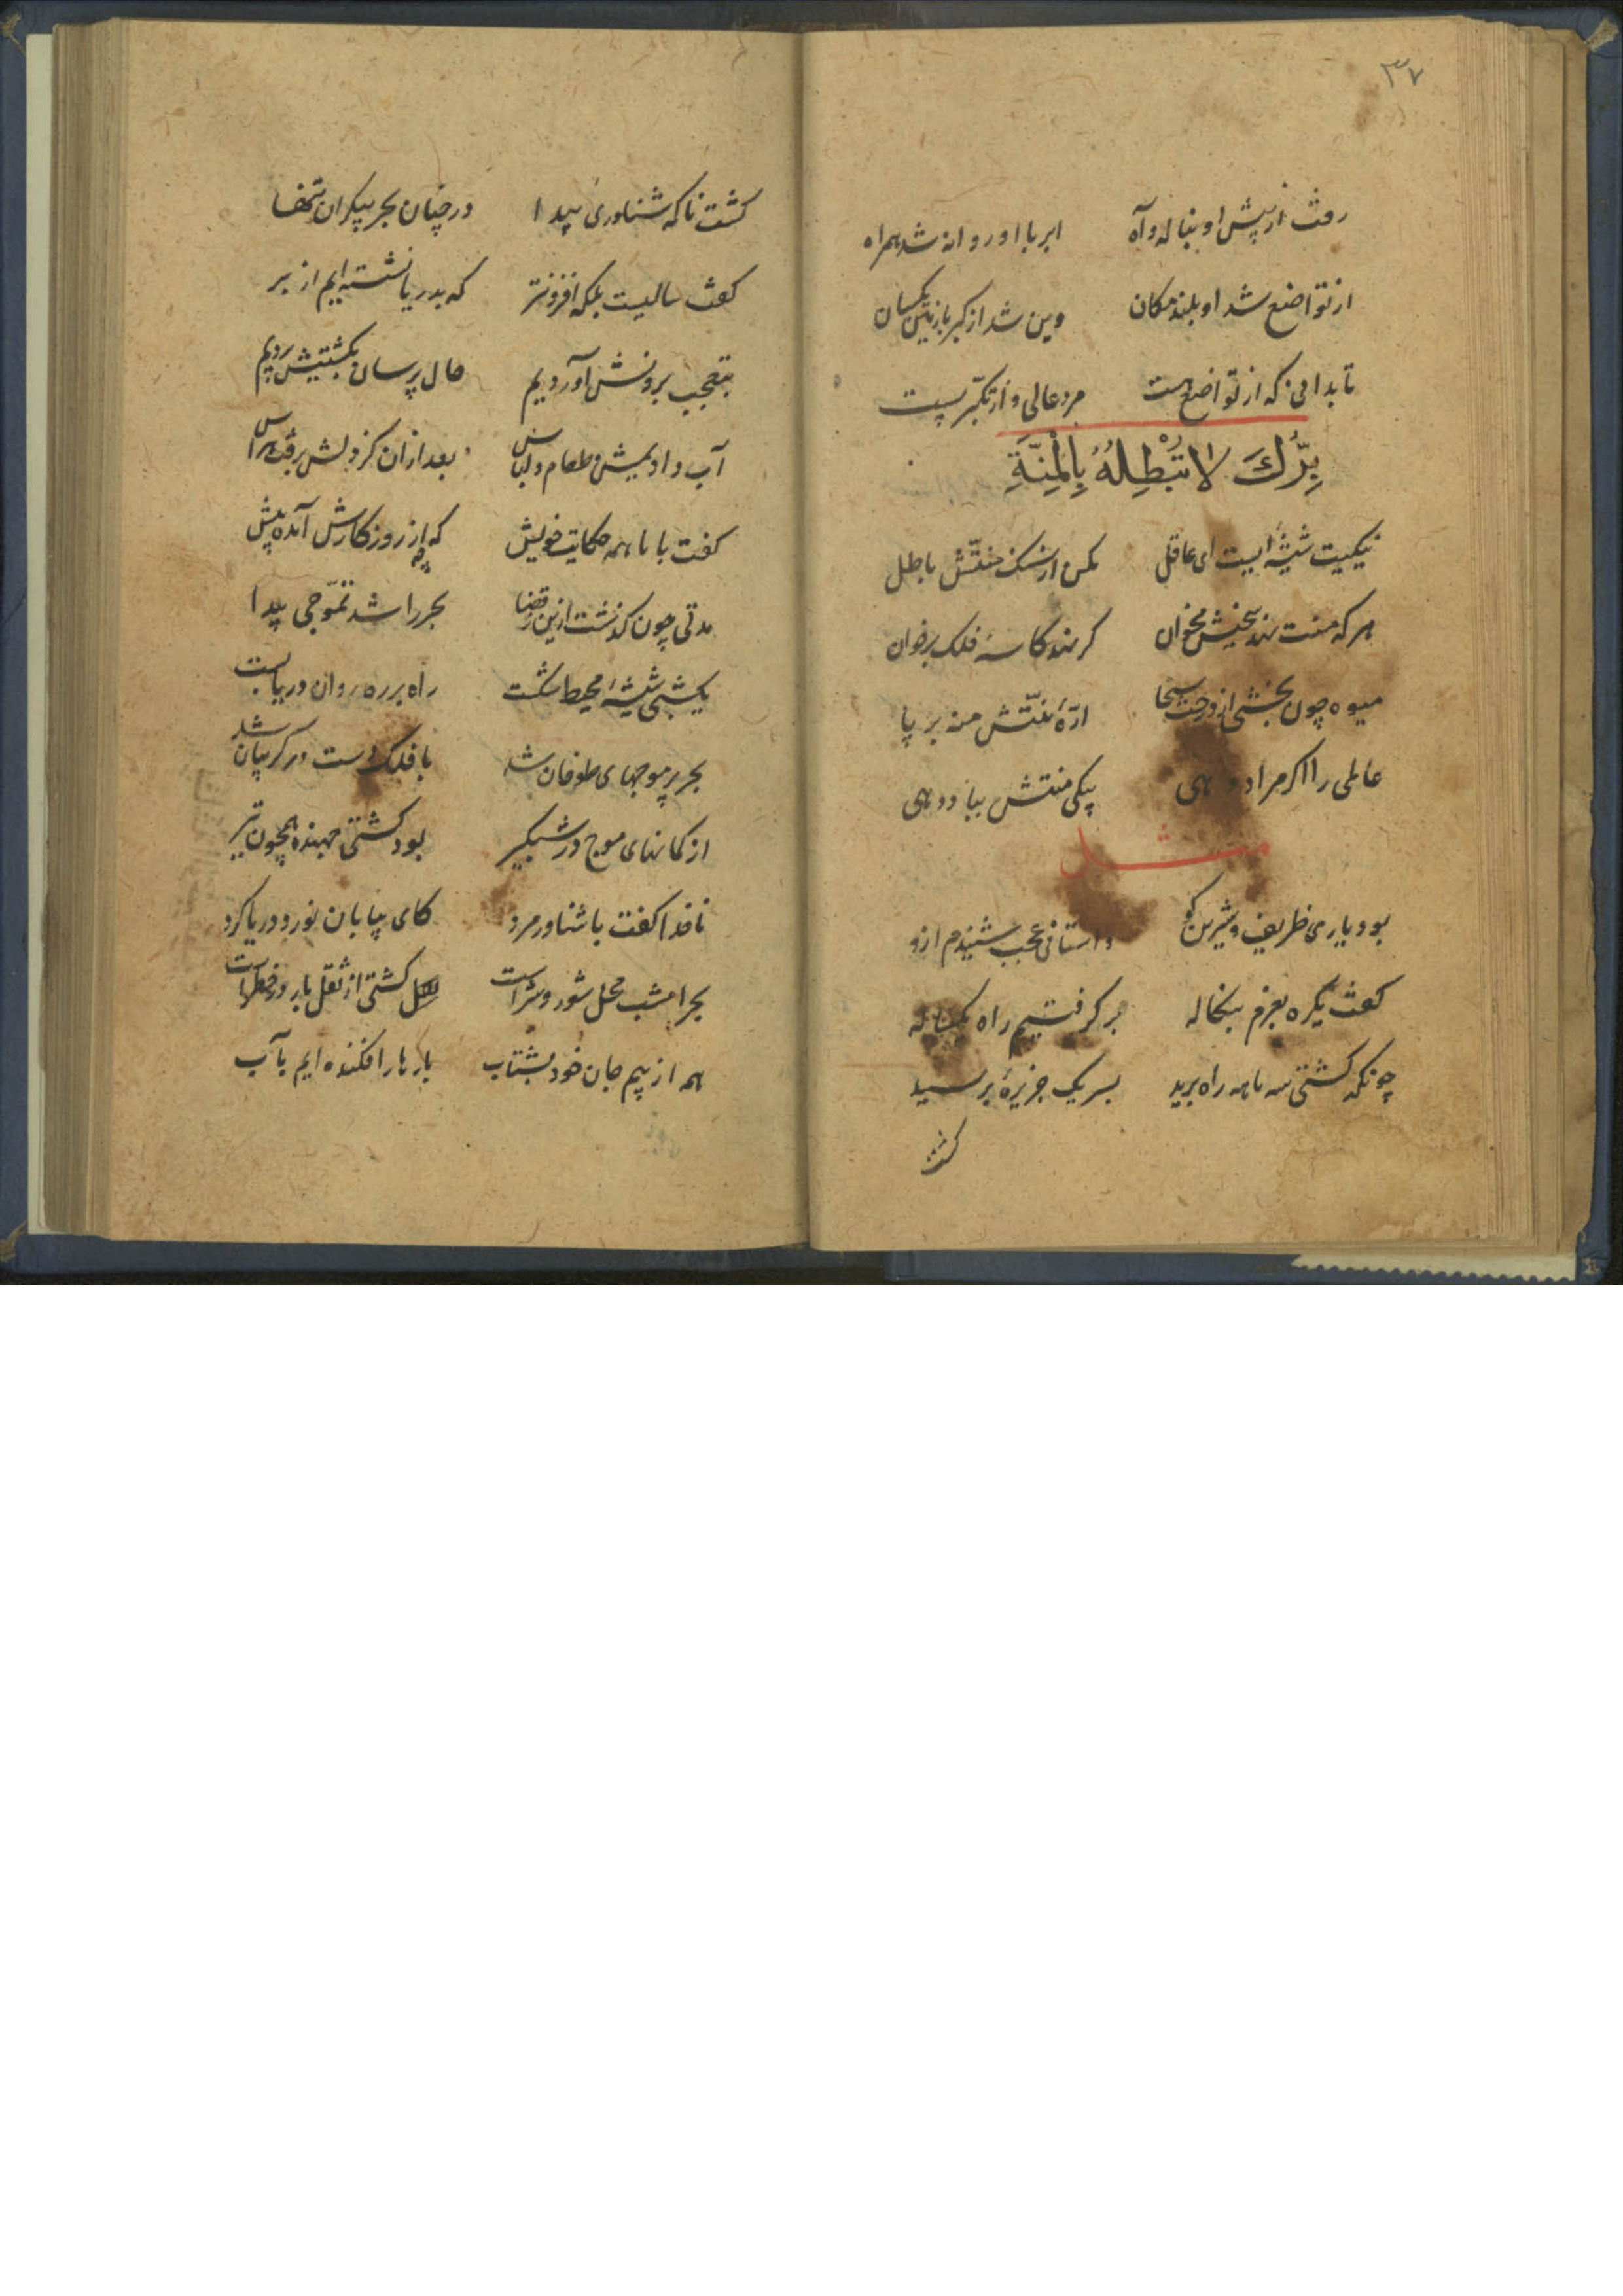 ۳۷
رفت از پیش او بناله و آه ابر با او روانه شد همراه
از تواضع شد او بلند مکان وین شد از کبر با زمین یکسان
تا بدانی که از تواضع هست مرد عالی و از تکبّر پست
بِرُّكَ لَا تُبْطِلْهُ بِالْمِنَّةِ
نیکیت شیشهٔ ایست ای عاقل مکن از سنک منتّش باطل
هر که منت نهد سخیش مخوان کر نهد کاسهٔ فلک بر خوان
میوه چون بخشی از درخت سخا ارّهٔ منتّش منه بر پا
عاملی را اکر مراد دهی بیکی منتش بباد دهی
مثل
بود یاری ظریف و شیرین کو داستانی عجب شنیدم ازو
کفت یکره بعزم بنکاله بر کرفتیم راه یکساله
چونکه کشتی سه ماهه راه برید بسر یک جزیرهٔ برسید
کشت
کشت ناکه شناوری پیدا در چنان بحر بیکران تنها
کفت سالیست بلکه افزونتر که بدریا نشسته‌ایم از بر
بتعجب برونش آوردیم حال پرسان بکشتیش بردیم
آب دادیمش و طعام و لباس بعد از آن کز دلش برفت هراس
کفت با ما همه حکایت خویش که چه از روزکارش آمده پیش
مدتی چون کذشت ازین ز قضا بحر را شد تموّجی پیدا
یکشبی شیشهٔ محیط شکست راه بر ره روان دریا بست
بحر پر موجهای طوفان شد با فلک دست در کریبان شد
از کمانهای موج در شبکیر بود کشتی جهنده همچون تیر
ناخدا کفت با شناور مرد کای بیابان نورد دریا کرد
بحر امشب محل شور و شراست کشتی از ثقل بار در خطر است
همه از بیم جان خود بشتاب بارها را فکنده‌ایم بآب